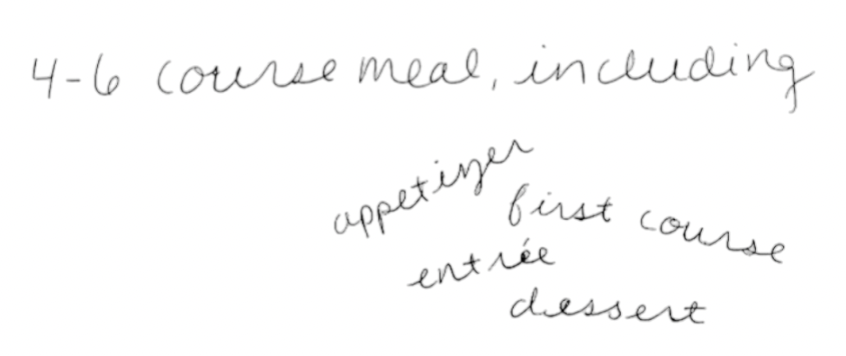 4-6 course meal, including
appetizer
first course
entrée
dessert